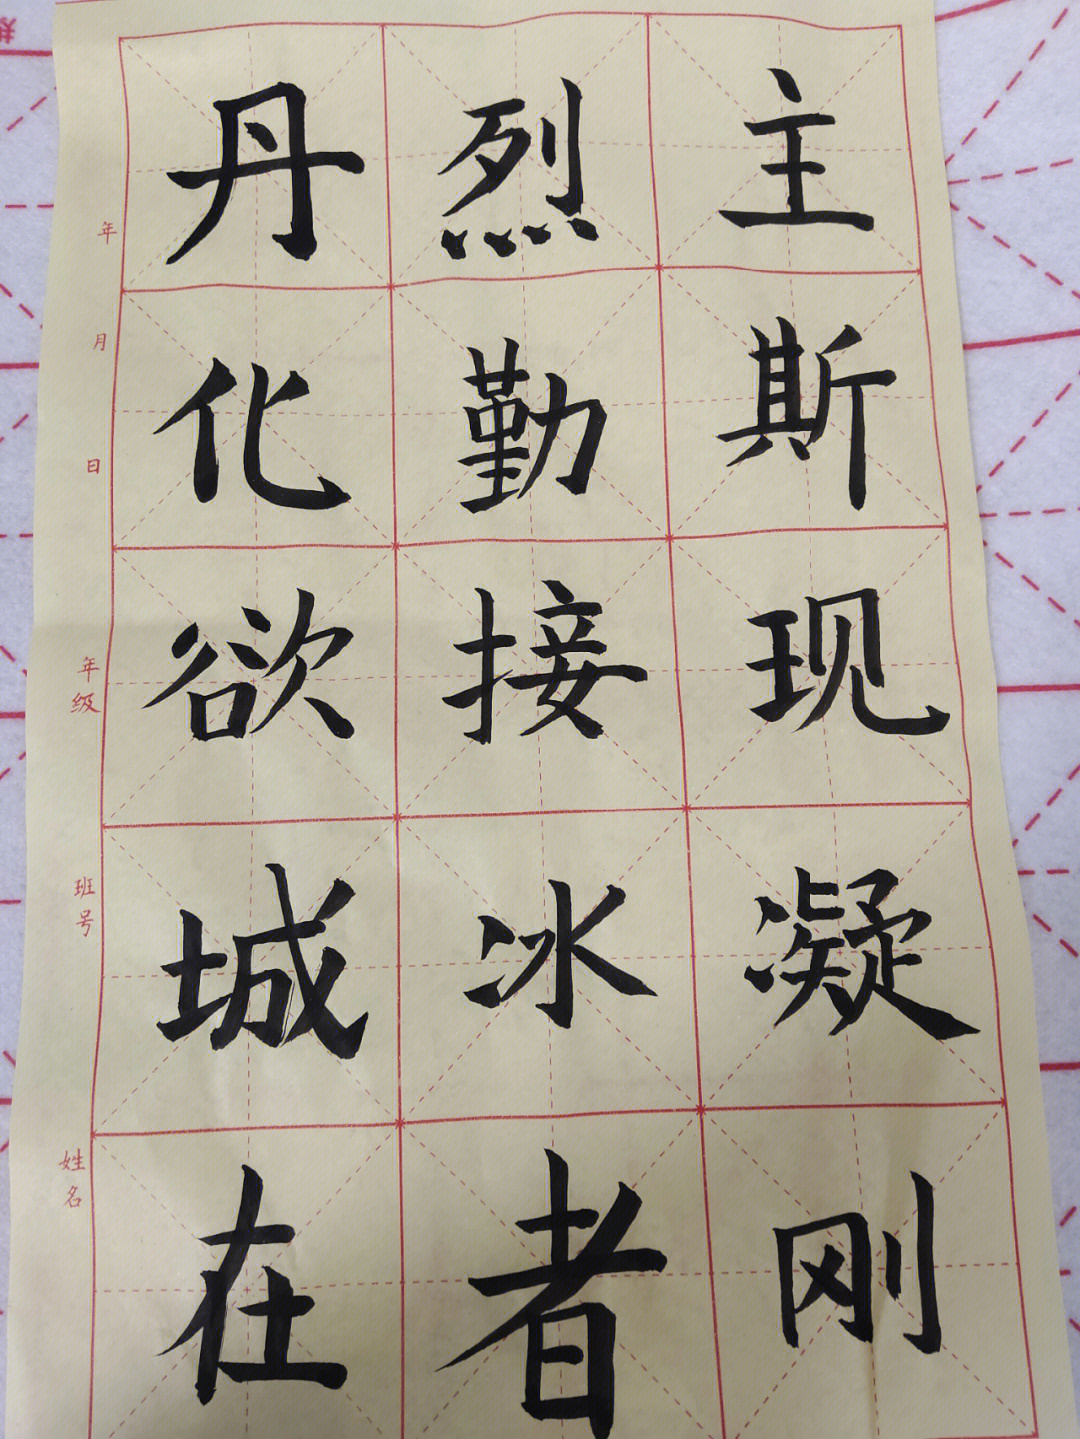 丹烈主
化勤斯
欲接现
城冰凝
在者刚
年
月
日
年级
班号
姓名